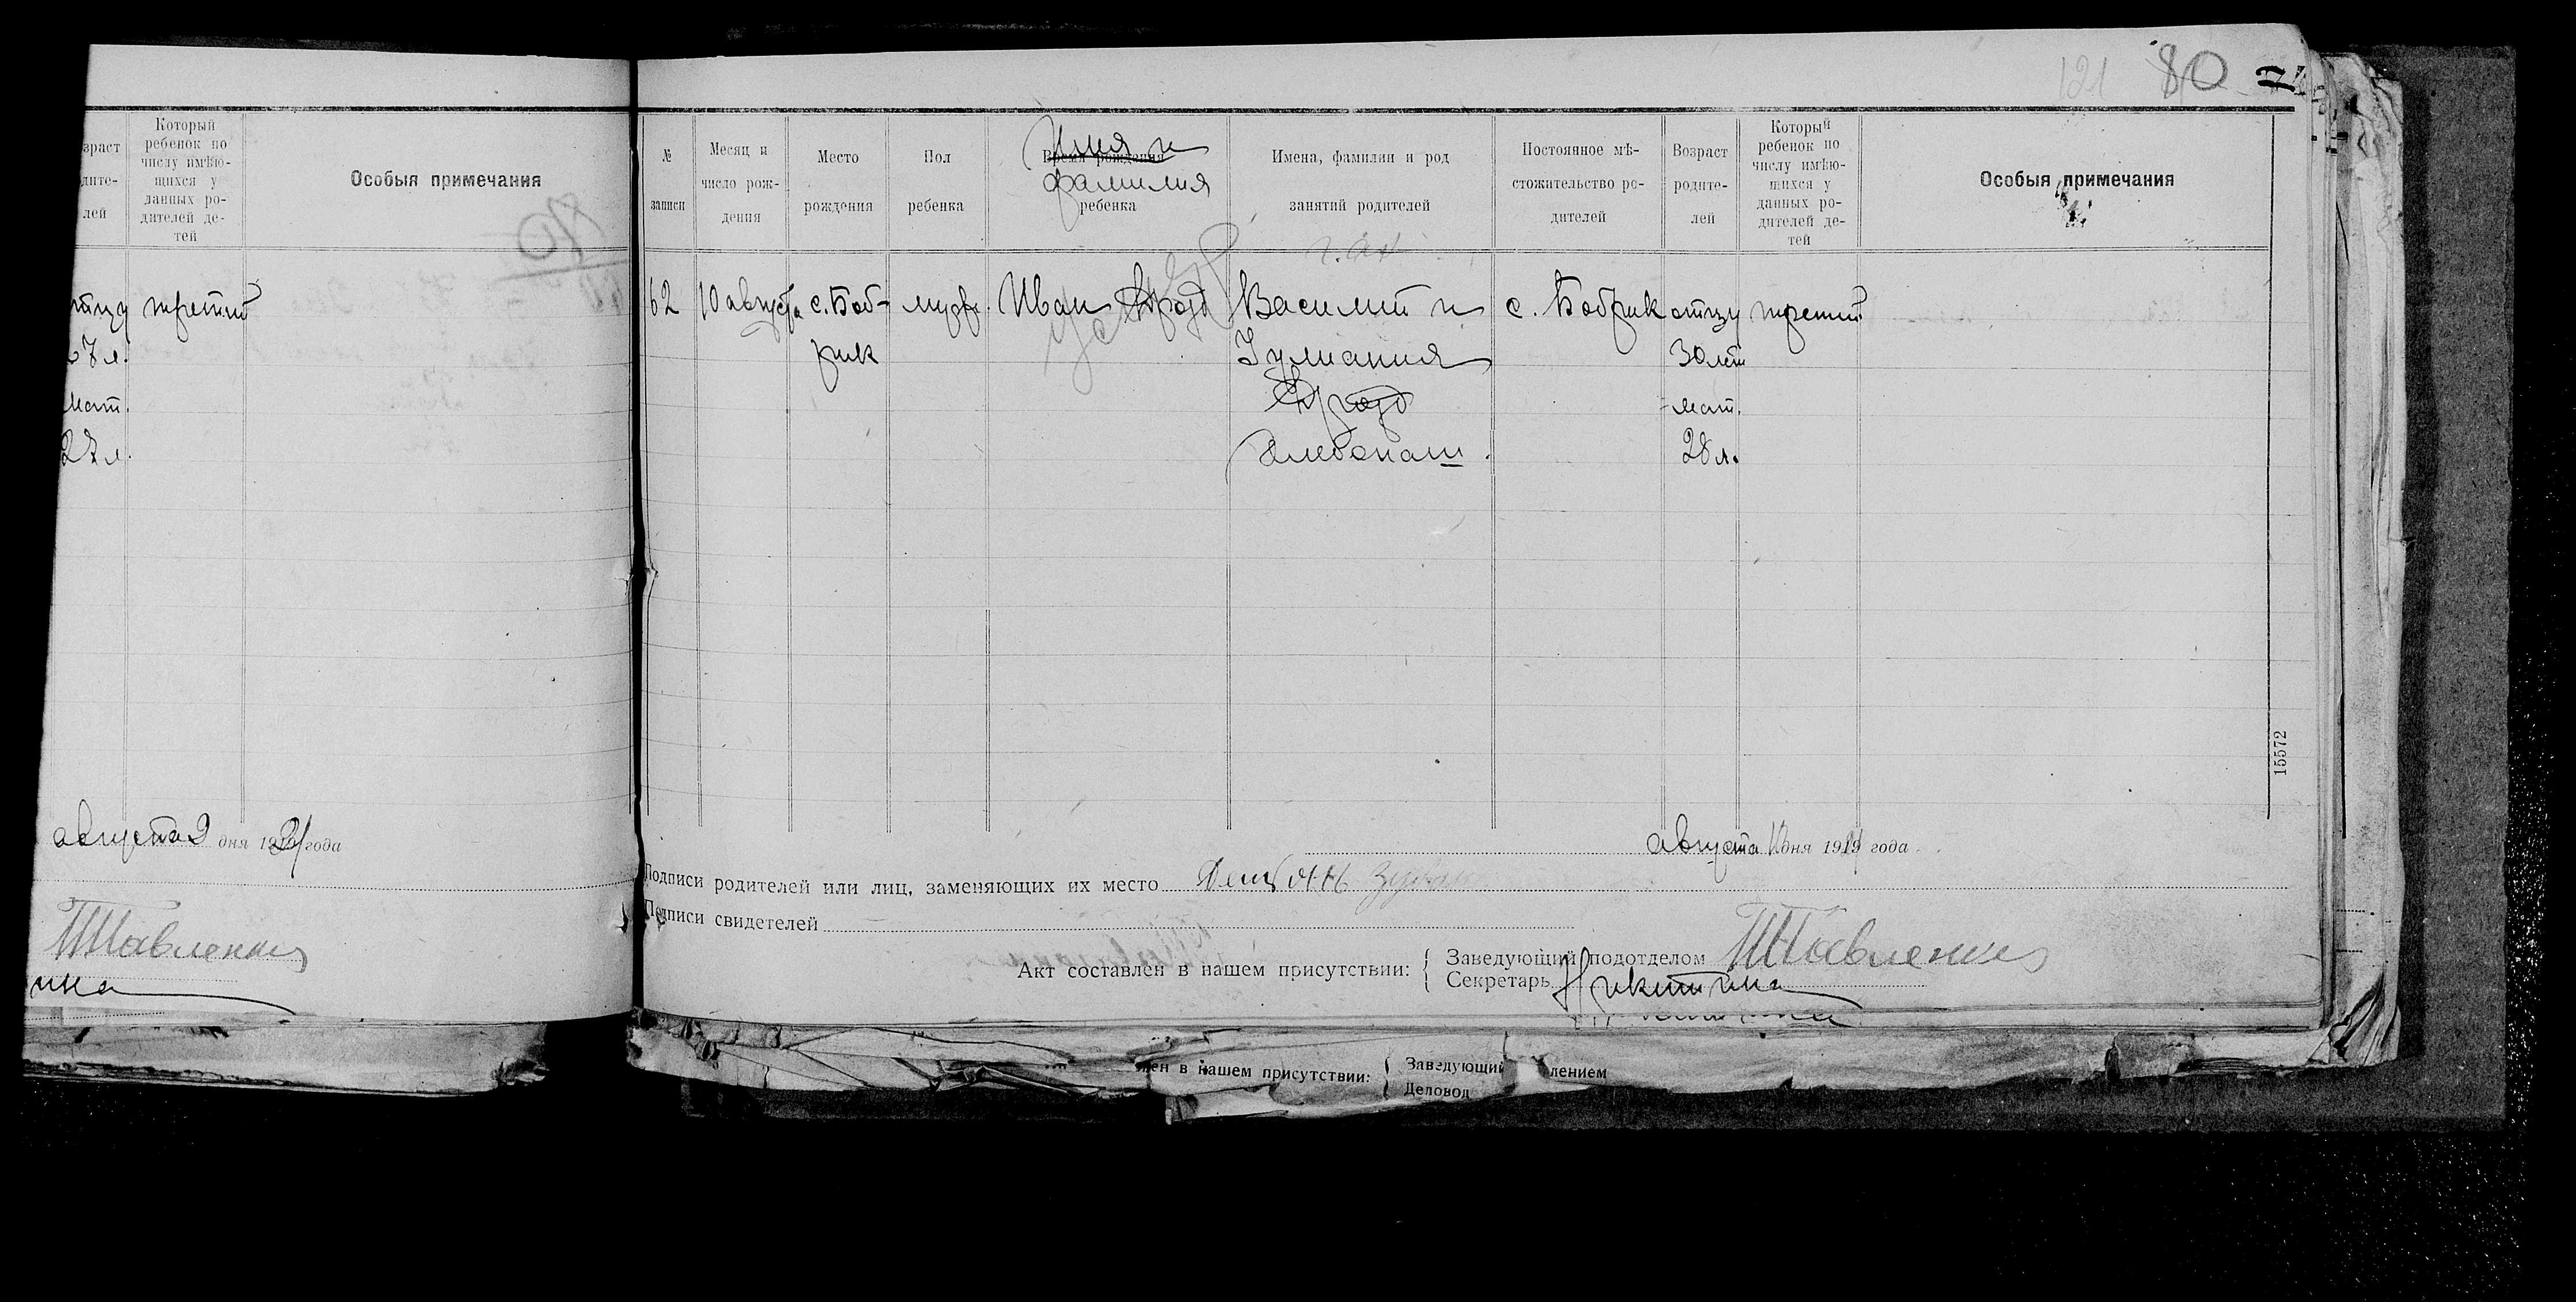 121 80
зраст
дите-
лей
Который
ребенок по
числу имѣю-
щихся у
данных ро-
дителей де-
тей
Особыя примечания
третий
7 л.
мат.
27 л.
августа 9 дня 1921 года
ТПавленко
ина
№
записи
Месяц и
число рож-
дения
Место
рождения
Пол
ребенка
Время рождения
Имя и
фамилия
ребенка
Имена, фамилии и род
занятий родителей
Постоянное мѣ-
стожительство ро-
дителей
Возраст
родите-
лей
Который
ребенок по
числу имѣю-
щихся у
данных ро-
дителей де-
тей
Особыя примечания
62 10 августа с. Боб- мужс. Иван Дрозд Василий и с. Бобрик отцу третий
рик Иулиания 30 лет
Дрозд мат.
Хлебопаш. 28 л.
15572
августа дня 1921 года
Подписи родителей или лиц, заменяющих их место
Подписи свидетелей
Акт составлен в нашем присутствии:
Заведующий подотделом ТПавленко
Секретарь Никитина
лен в нашем присутствии:
Заведующий лением
Деловод